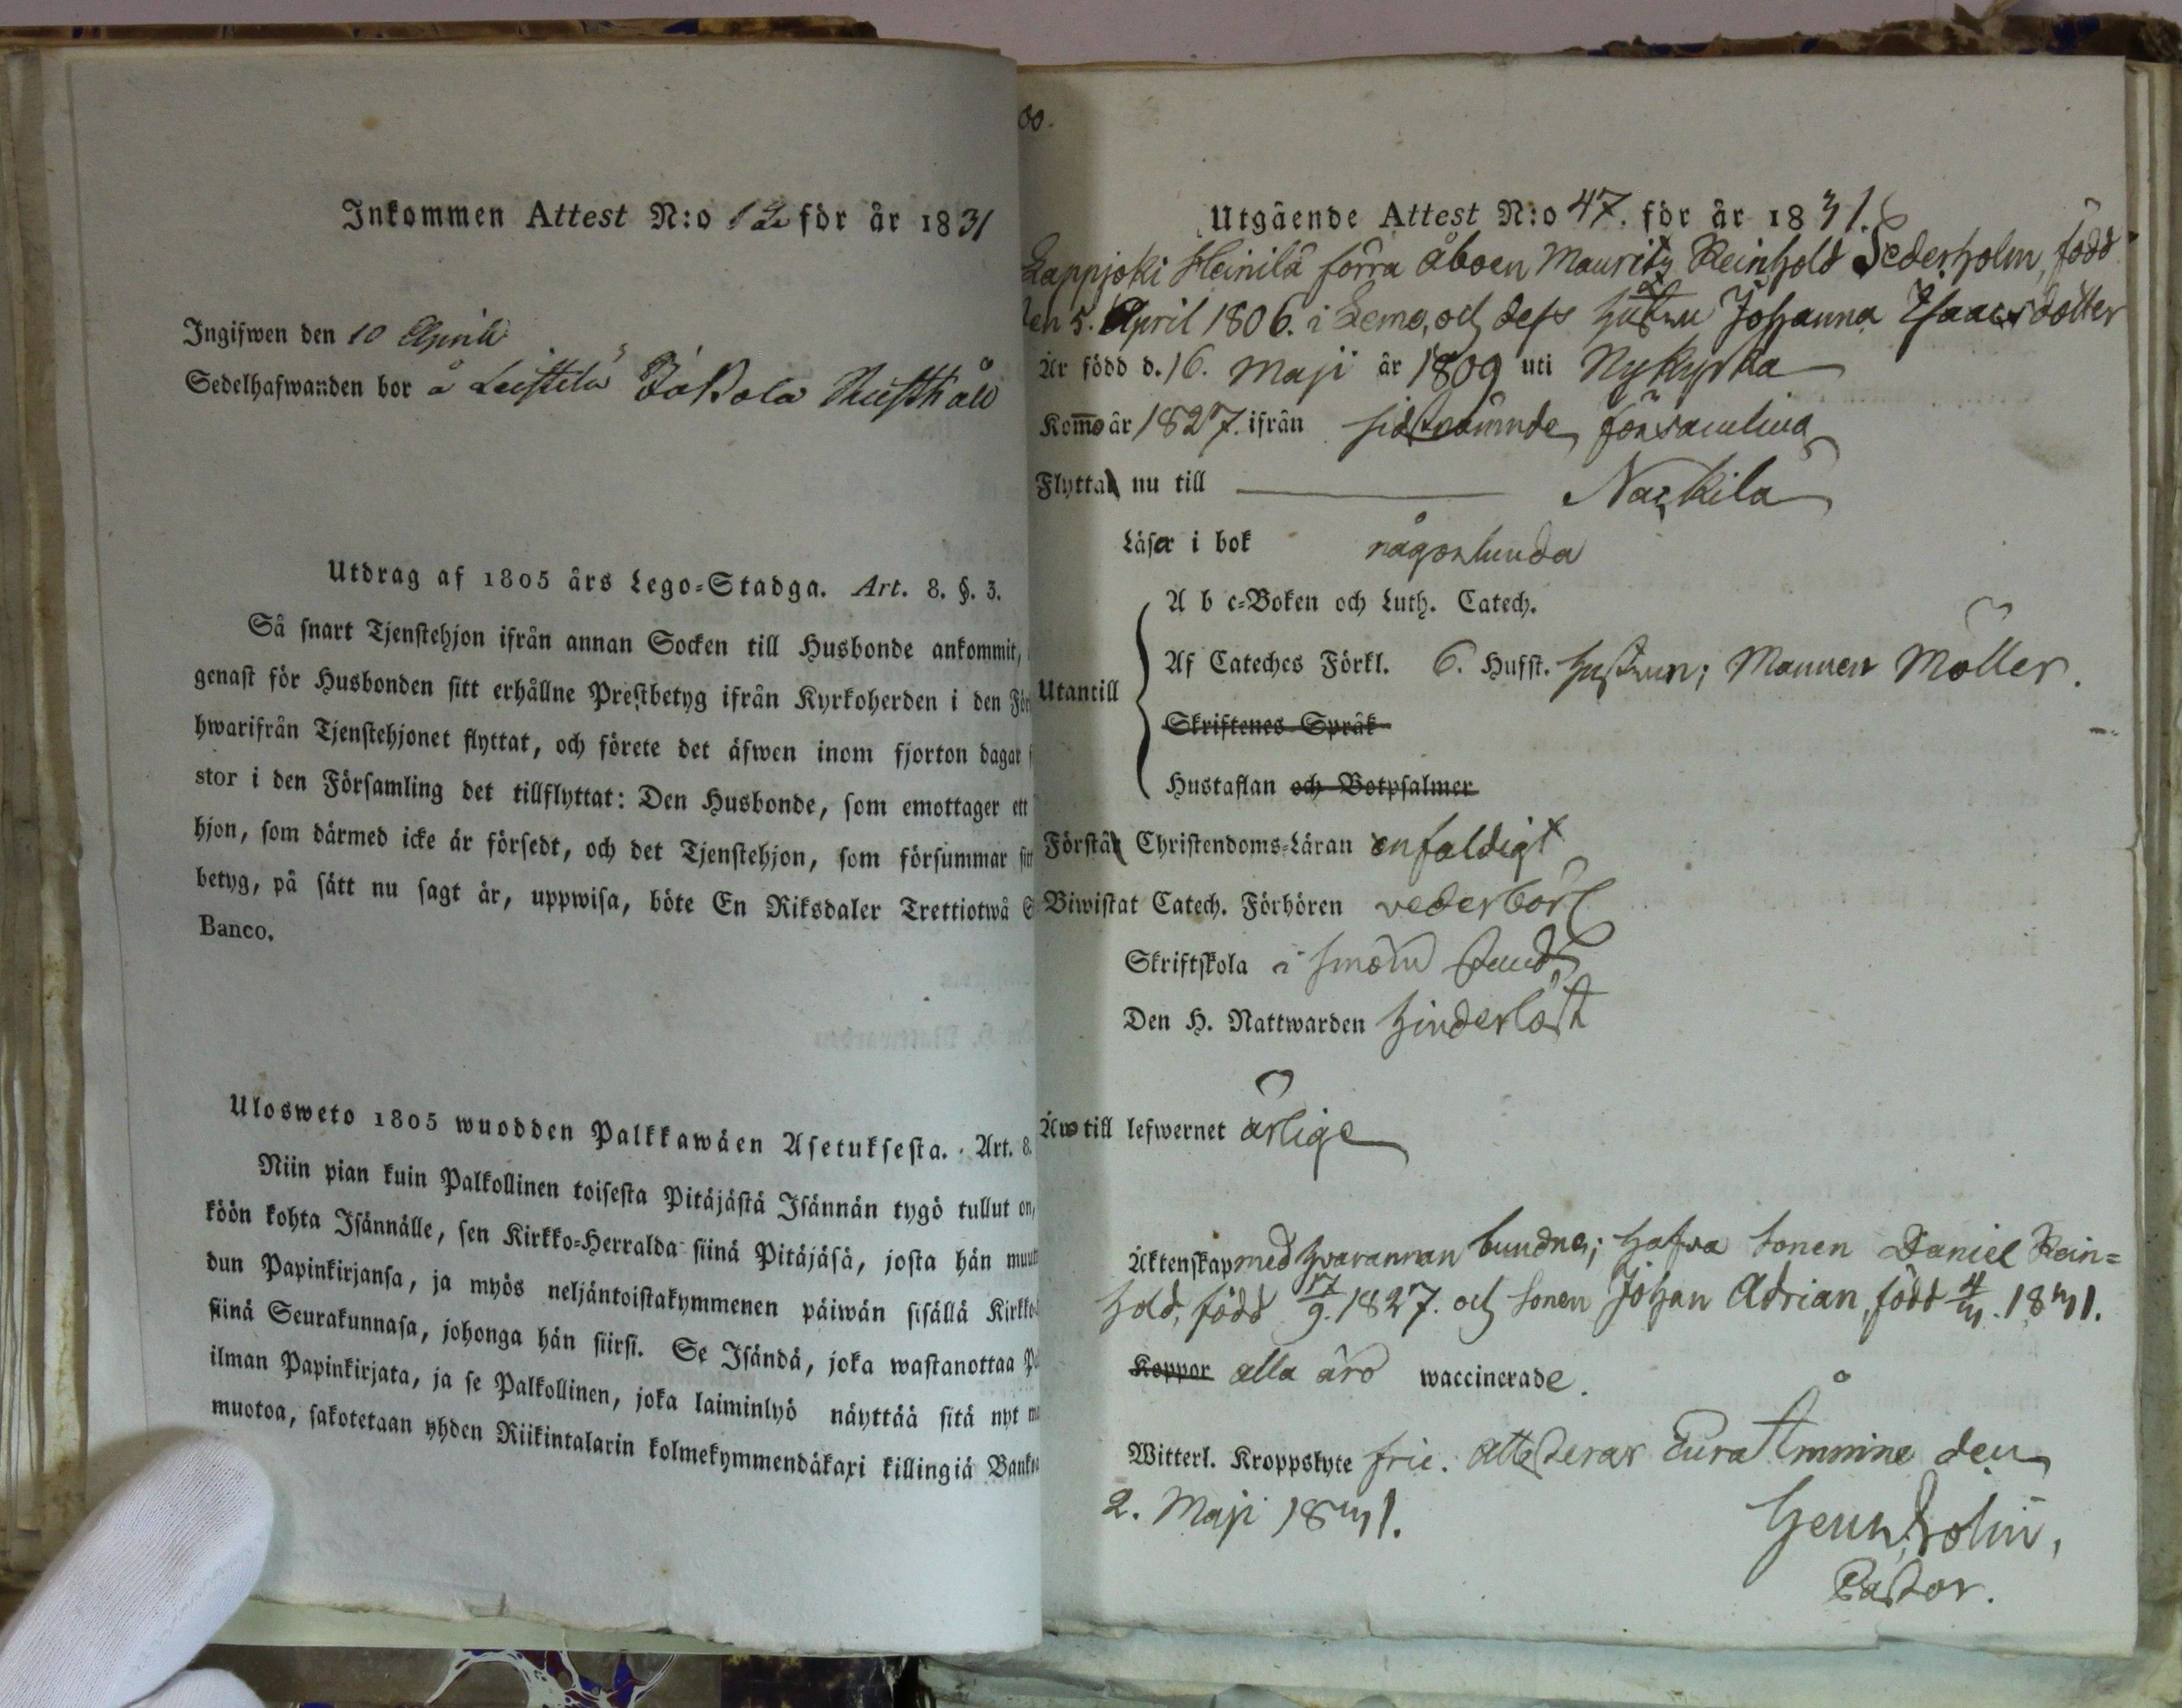 Inkommen Attest N:o 12 för år 1831
Ingifwen den 10 Aprill
Sedelhafwanden bor å Leistilä Jakola Rusthåll
Utdrag af 1805 års Lego-Stadga. Art. 8. §. 3.
Så snart Tjenstehjon ifrån annan Socken till Husbonde ankommit,
genast för Husbonden sitt erhållne Prestbetyg ifrån Kyrkoherden i den För
hwarifrån Tjenstehjonet flyttat, och förete det äfwen inom fjorton dagar
stor i den Församling det tillflyttat: Den Husbonde, som emottager ett
hjon, som därmed icke är försedt, och det Tjenstehjon, som försummar sitt
betyg, på sätt nu sagt är, uppwisa, böte En Riksdaler Trettiotwå S
Banco.
Ulosweto 1805 wuodden Palkkawäen Asetuksesta. Art. 8.
Niin pian kuin Palkollinen toisesta Pitäjästä Isännän tygö tullut on,
köön kohta Isännälle, sen Kirkko-Herralda siinä Pitäjäsä, josta hän muut
dun Papinkirjansa, ja myös neljäntoistakymmenen päiwän sisällä Kirkko
siinä Seurakunnasa, johonga hän siirsi. Se Isändä, joka wastanottaa Pa
ilman Papinkirjata, ja se Palkollinen, joka laiminlyö näyttää sitä nyt m
muotoa, sakotetaan yhden Riikintalarin kolmekymmendäkaxi killingiä Banko
Utgående Attest N:o 47. för år 1831.
Lappjoki Heinilä förra åboen Mauritz Reinhold Sederholm, född
den 5. April 1806. i Lemo, och dess hustru Johanna Isaacsdotter
Är född d. 16. Maji år 1809 uti Nykyrka
Kommo år 1827. ifrån sistnämnde församling
Flytta nu till Nackila
Läsa i bok någorlunda
A b c-Boken och Luth. Catech.
Af Cateches Förkl. 6. Hufst. hustrun; Mannen Möller.
Utantill
Skriftenes Språk
Hustaflan och Botpsalmer
Förstå Christendoms-Läran enfaldigt
Biwistat Catech. Förhören vederbörl
Skriftskola i
Den H. Nattwarden hinderlöst
Äro till lefwernet ärlige
Äktenskap med hvarannan bundne; hafva sonen Daniel Rein=
hold, född 17/9. 1827. och sonen Johan Adrian, född 4/3. 1831.
Koppor alla äro waccinerade.
Witterl. Kroppslyte frie. Attesterar Eura Åmminne den
2. Maji 1831.
Pastor.